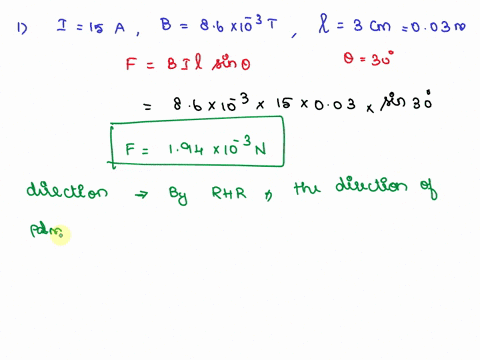 1) I = 15 A, B = 8.6 × 10⁻³ T, l = 3 cm = 0.03 m
F = B I l sin θ θ = 30°
= 8.6 × 10⁻³ × 15 × 0.03 × sin 30°
F = 1.94 × 10⁻³ N
direction → By RHR, the direction of